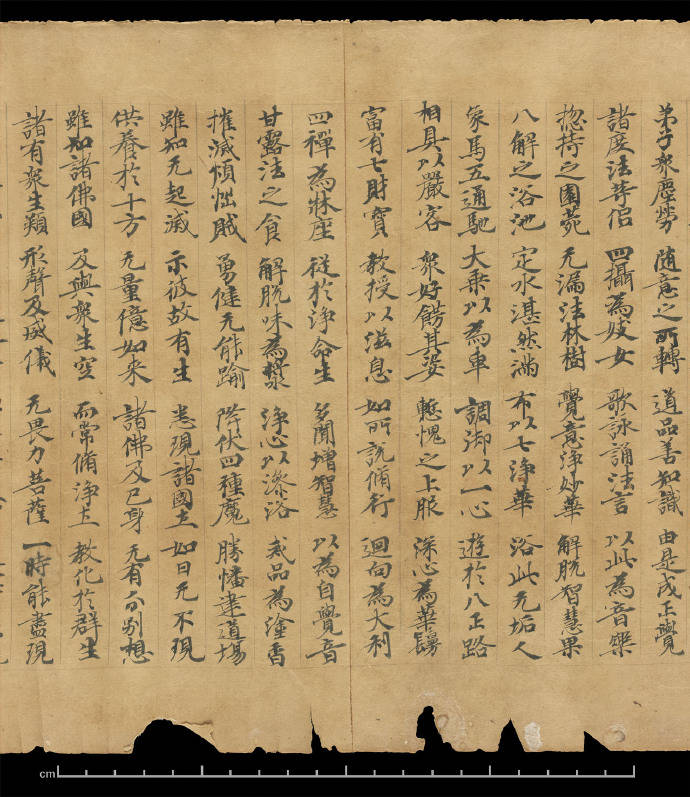 弟子衆塵勞 随意之所轉 道品善知識 由是成正覺
諸度法等侣 四攝為妓女 歌詠誦法言 以此為音樂
惣持之園菀 无漏法林樹 覺意浄妙華 解脱智慧果
八解之浴池 定水湛然滿 布以七浄華 浴此无垢人
象馬五通馳 大乗以為車 調御以一心 遊於八正路
相具以嚴容 衆好餝其姿 慙愧之上服 深心為華鬘
富有七財寶 教授以滋息 如所説脩行 迴向為大利
四禪為牀座 従於浄命生 多聞増智慧 以為自覺音
甘露法之食 解脱味為漿 浄心以澡浴 戒品為塗香
摧滅煩惱賊 勇健无能踰 降伏四種魔 勝幡建道場
雖知无起滅 示彼故有生 悉現諸國土 如日无不現
供養於十方 无量億如来 諸佛及己身 无有分别想
雖知諸佛國 及與衆生空 而常脩浄土 教化於群生
諸有衆生類 形聲及威儀 无畏力菩薩 一時能盡現
cm